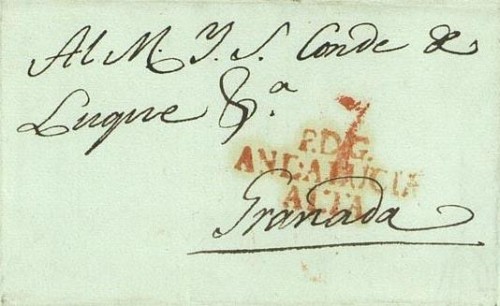 Al M. Y. S. Conde de
Luque &.ª
7
P.D.G.
ANDALUCIA
ALTA
Granada